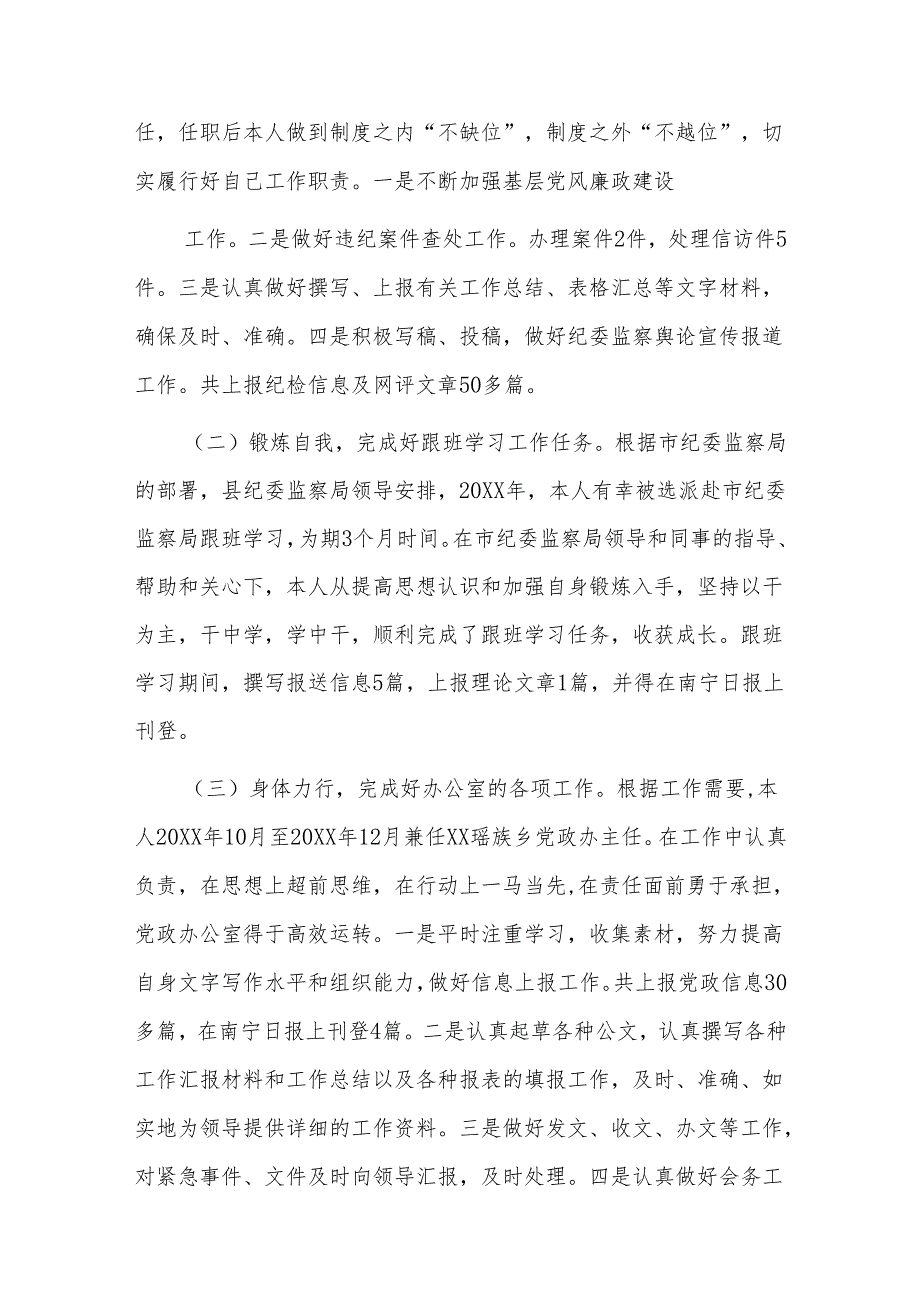 任，任职后本人做到制度之内“不缺位”，制度之外“不越位”，切
实履行好自己工作职责。一是不断加强基层党风廉政建设
工作。二是做好违纪案件查处工作。办理案件2件，处理信访件5
件。三是认真做好撰写、上报有关工作总结、表格汇总等文字材料，
确保及时、准确。四是积极写稿、投稿，做好纪委监察舆论宣传报道
工作。共上报纪检信息及网评文章50多篇。
（二）锻炼自我，完成好跟班学习工作任务。根据市纪委监察局
的部署，县纪委监察局领导安排，20XX年，本人有幸被选派赴市纪委
监察局跟班学习,为期3个月时间。在市纪委监察局领导和同事的指导、
帮助和关心下，本人从提高思想认识和加强自身锻炼入手，坚持以干
为主，干中学，学中干，顺利完成了跟班学习任务，收获成长。跟班
学习期间，撰写报送信息5篇，上报理论文章1篇，并得在南宁日报上
刊登。
（三）身体力行，完成好办公室的各项工作。根据工作需要,本
人20XX年10月至20XX年12月兼任XX瑶族乡党政办主任。在工作中认真
负责，在思想上超前思维，在行动上一马当先,在责任面前勇于承担，
党政办公室得于高效运转。一是平时注重学习，收集素材，努力提高
自身文字写作水平和组织能力,做好信息上报工作。共上报党政信息30
多篇，在南宁日报上刊登4篇。二是认真起草各种公文，认真撰写各种
工作汇报材料和工作总结以及各种报表的填报工作，及时、准确、如
实地为领导提供详细的工作资料。三是做好发文、收文、办文等工作，
对紧急事件、文件及时向领导汇报，及时处理。四是认真做好会务工